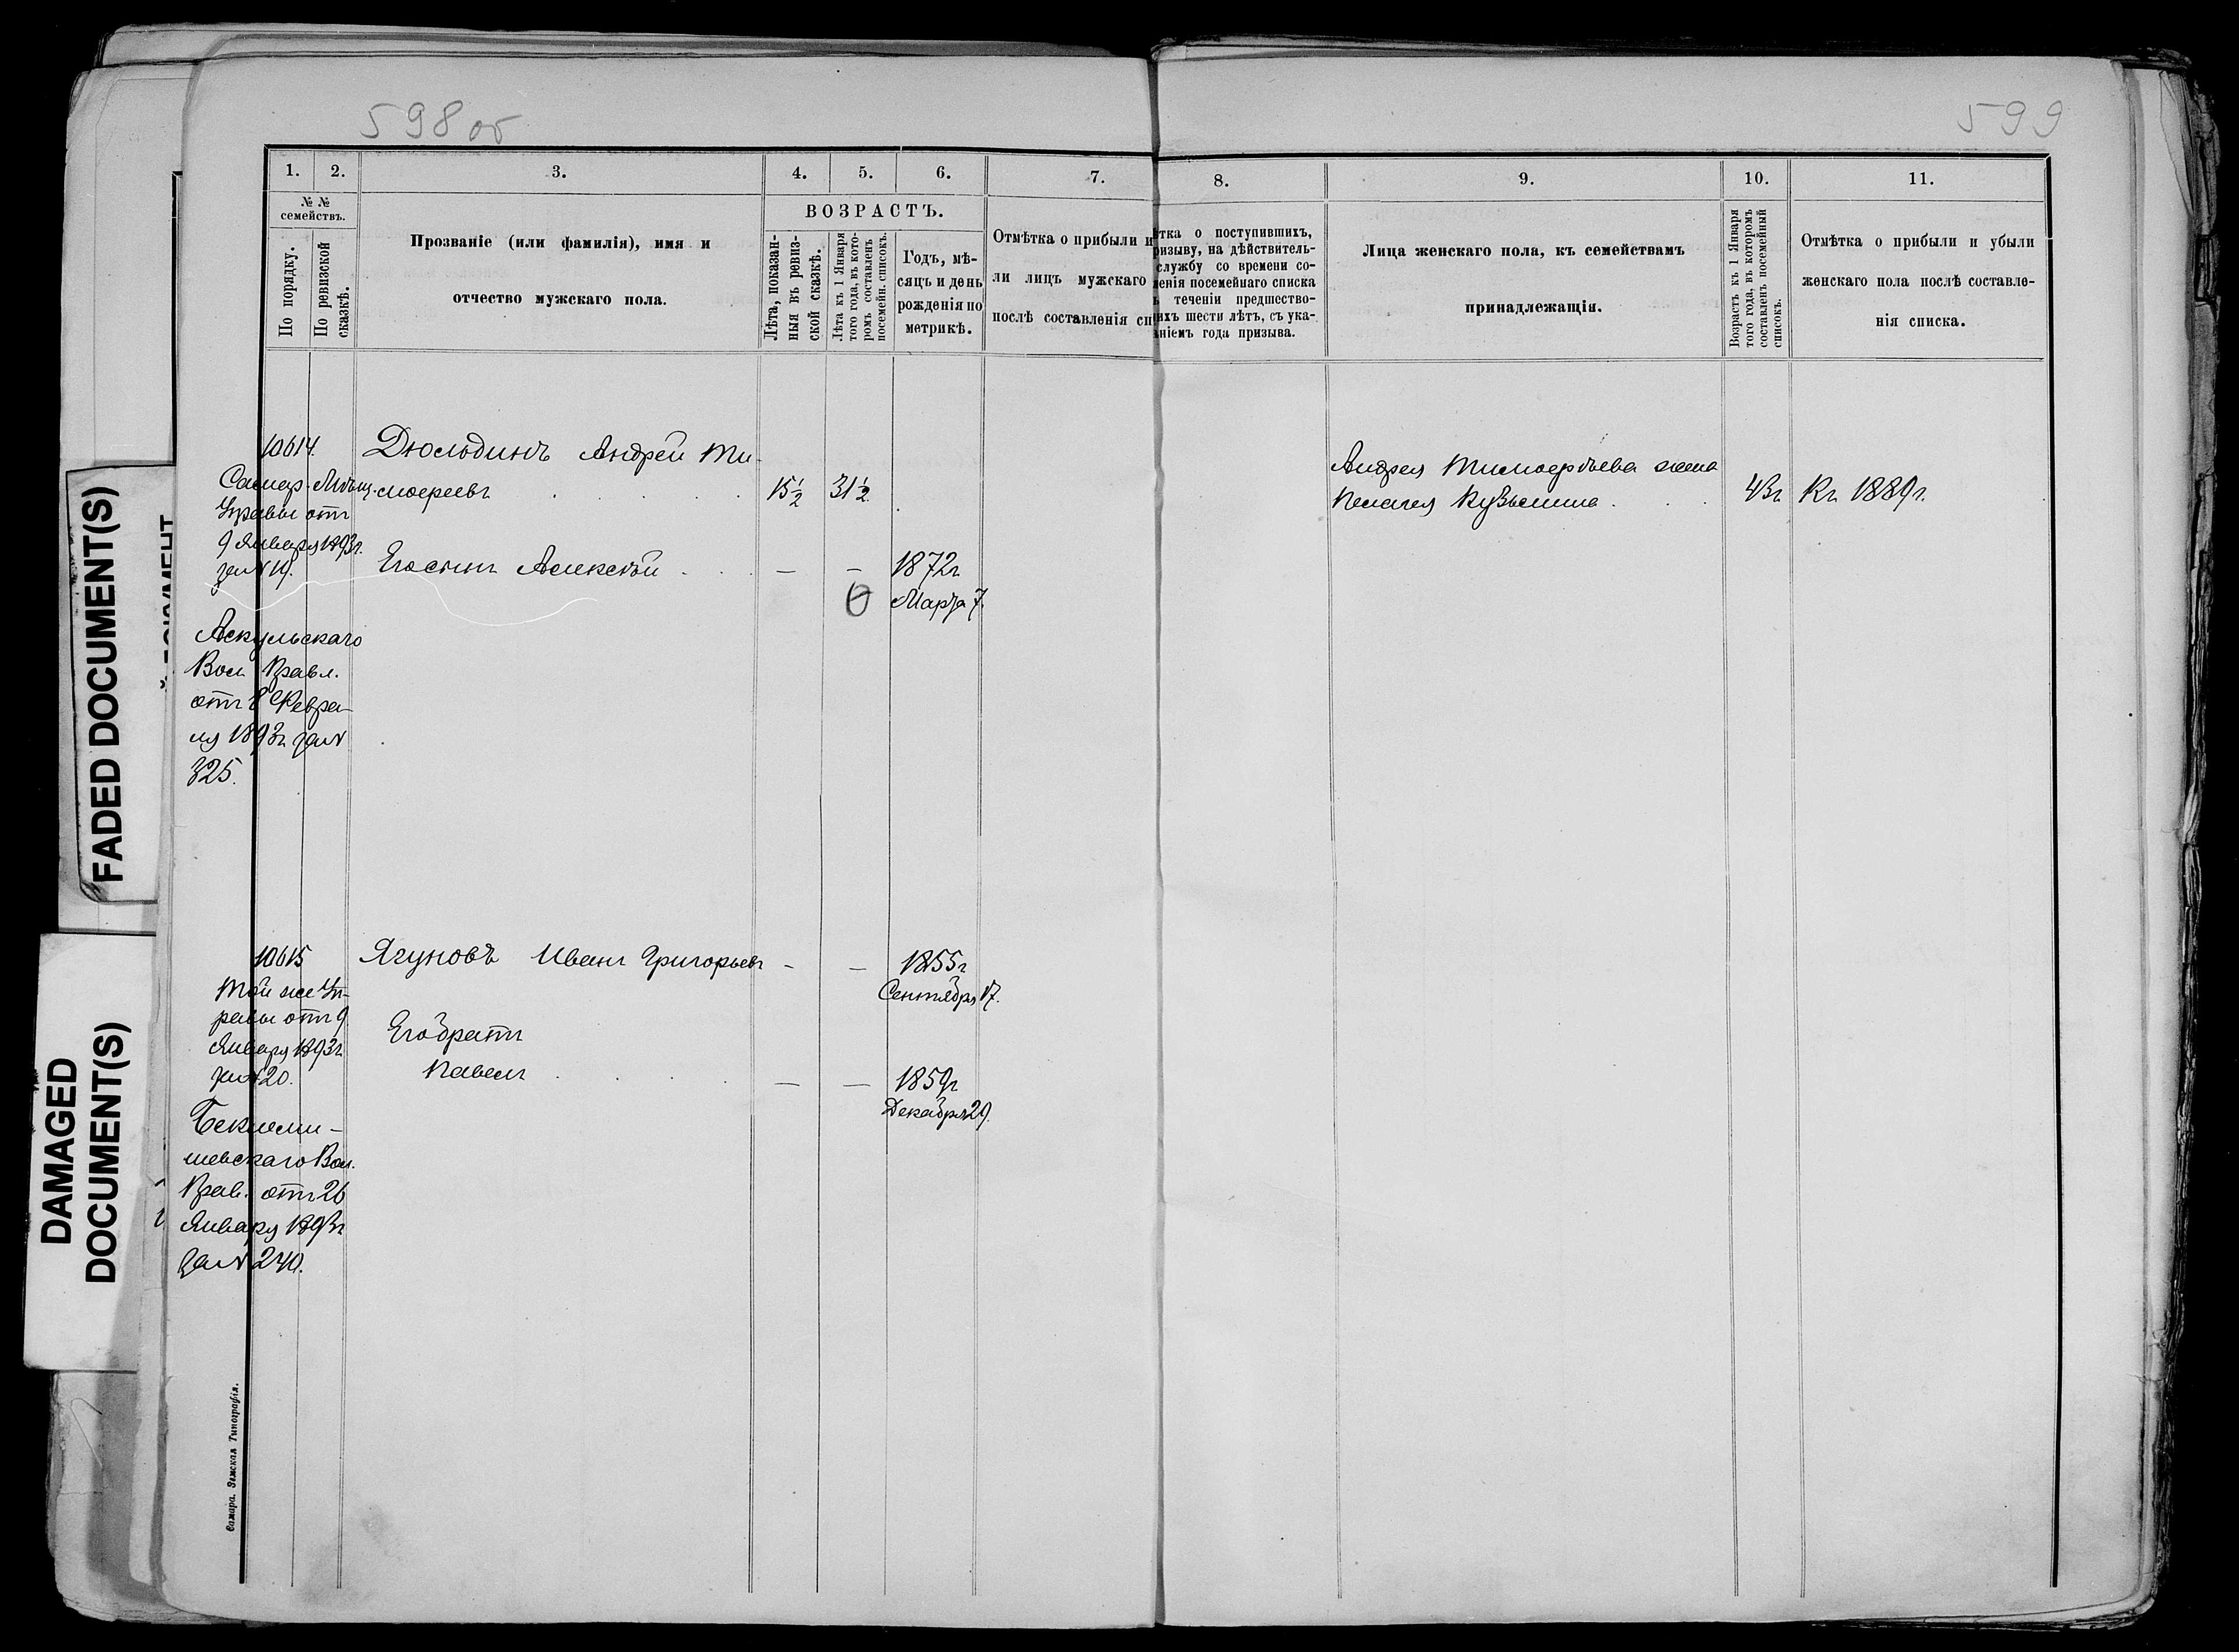 598 об
599
1. 2. 3. 4. 5. 6. 7. 8. 9. 10. 11.
№ №
семействъ.
По порядку.
По ревизской
сказкѣ.
Прозваніе (или фамилія), имя и
отчество мужскаго пола.
ВОЗРАСТЪ.
Лѣта, показан-
ныя въ ревиз-
ской сказкѣ.
Лѣта къ 1 Января
того года, въ кото-
ромъ составленъ
посемейн. списокъ.
Годъ, мѣ-
сяцъ и день
рожденія по
метрикѣ.
Отмѣтка о прибыли и
ли лицъ мужскаго
послѣ составленія сп
ѣтка о поступившихъ,
ризыву, на дѣйствитель-
службу со времени со-
ленія посемейнаго списка
ъ теченіи предшество-
ихъ шести лѣтъ, съ ука-
аніемъ года призыва.
Лица женскаго пола, къ семействамъ
принадлежащія.
Возрастъ къ 1 Января
того года, въ которомъ
составленъ посемейный
списокъ.
Отмѣтка о прибыли и убыли
женскаго пола послѣ составле-
нія списка.
10614.
Самар. Мѣщ.
Управы отъ
9 Января 1893г.
за № 19.
Аскульскаго
Вол. Правл.
отъ 8 Февра-
ля 1893г за №
325.
Дюльдинъ Андрей Ти-
мофеевъ 15½ 31½
Его сынъ Алексѣй — — 1872г
Марта 7.
Андрея Тимофѣева жена
Пелагея Кузьмина 43г Къ 1889г.
10615
Той же Уп-
равы отъ 9
Января 1893г
за № 20.
Бекшеми-
шевскаго Вол.
Прав. отъ 26
Января 1893г
за № 240.
Ягуновъ Иванъ Григорьевъ - — 1855г
Сентября 17.
Его братъ
Павелъ — — 1859г
Декабря 29.
Самара. Земская Типографія.
FADED DOCUMENT(S)
DAMAGED
DOCUMENT(S)